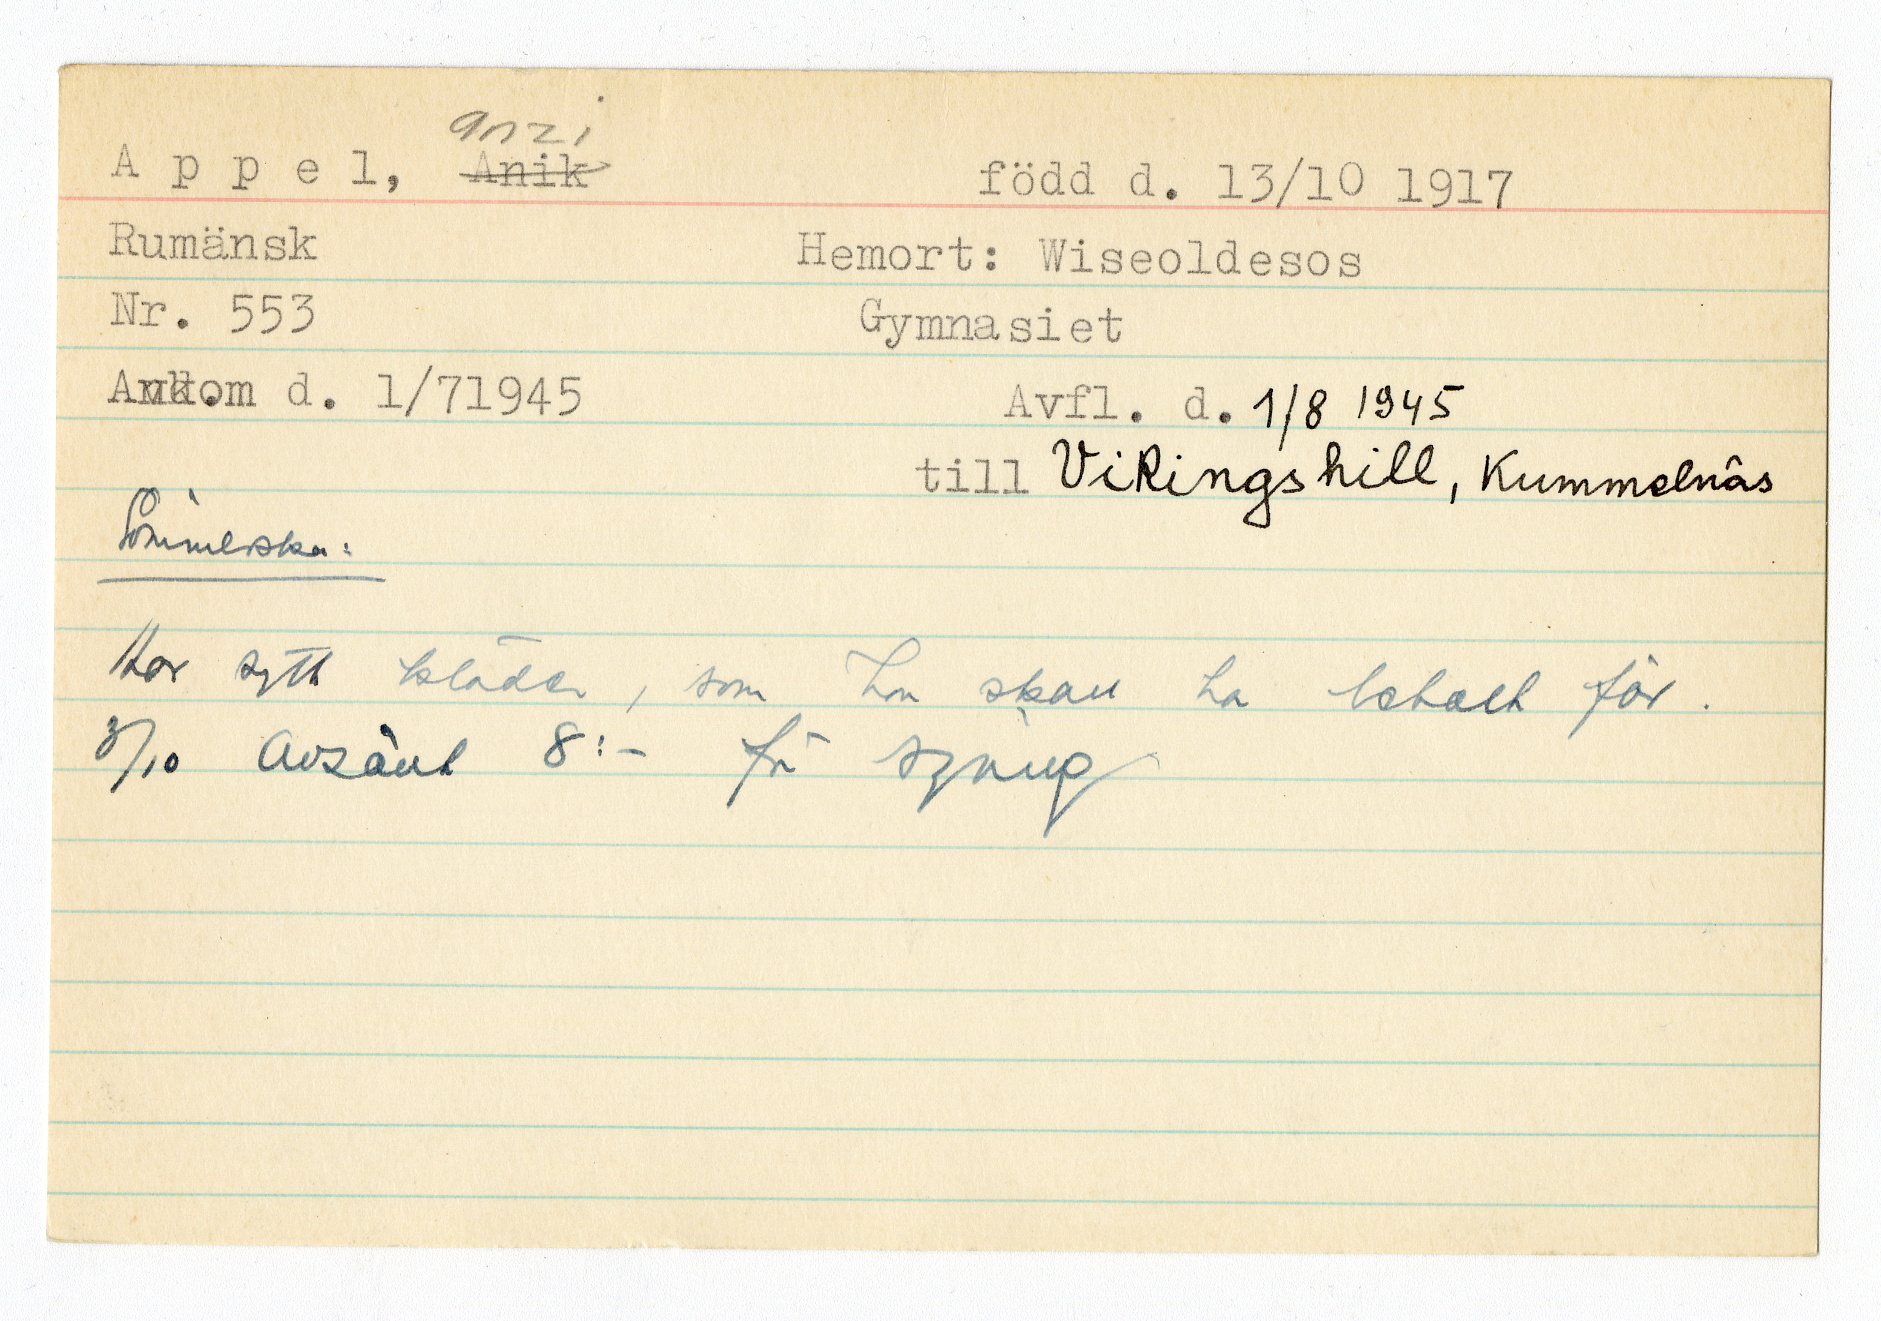 anzi
Appel, Anik född d. 13/10 1917
Rumänsk Hemort: Wiseoldesos
Nr. 553 Gymnasiet
Ankom d. 1/71945 Avfl. d. 1/8 1945
till Vikingshill, Kummelnäs
Sömmerska:
Har sytt kläder, som hon skall ha betalt för.
3/10 Avsänt 8:- för syning